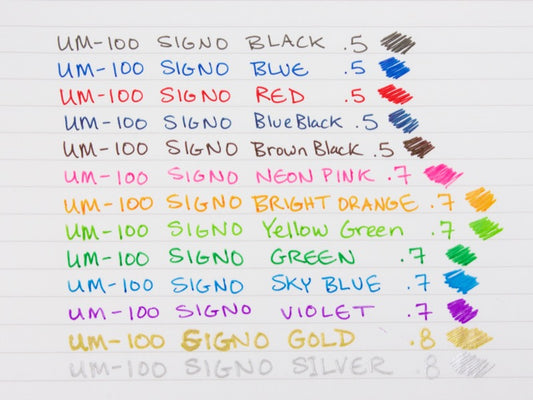 UM-100 SIGNO BLACK .5
UM-100 SIGNO BLUE .5
UM-100 SIGNO RED .5
UM-100 SIGNO BlueBlack .5
UM-100 SIGNO Brown Black .5
UM-100 SIGNO NEON PINK .7
UM-100 SIGNO BRIGHT ORANGE .7
UM-100 SIGNO Yellow Green .7
UM-100 SIGNO GREEN .7
UM-100 SIGNO SKY BLUE .7
UM-100 SIGNO VIOLET .7
UM-100 SIGNO GOLD .8
UM-100 SIGNO SILVER .8